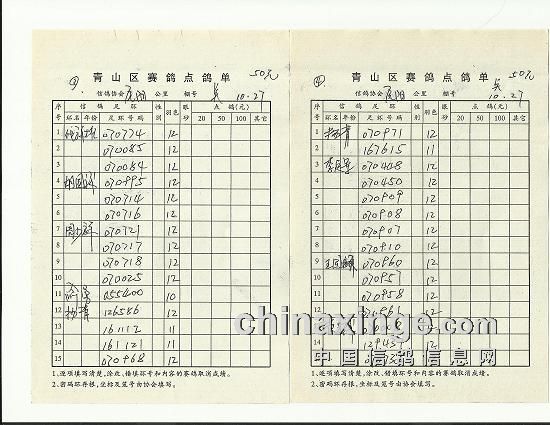 ③ 青山区赛鸽点鸽单 50元
信鸽协会 公里 棚号 10.27
序号 信鸽足环 性别 羽色 眼砂 点鸽(元)
环名 年份 足环号码 20 50 100 其它
1 070774 12
2 070085 12
3 070084 12
4 070895 12
5 070714 12
6 070716 12
7 070721 12
8 070717 12
9 070718 12
10 070025 12
11 055400 10
12 杨青 126586 12
13 161112 11
14 161121 11
15 070968 12
1、逐项填写清楚,涂改、错填环号和内容的赛鸽取消成绩。
2、密码环存根,坐标及笼号由协会填写。
④ 青山区赛鸽点鸽单 50元
信鸽协会 公里 棚号 10.27
序号 信鸽足环 性别 羽色 眼砂 点鸽(元)
环名 年份 足环号码 20 50 100 其它
1 杨青 070971 12
2 167615 11
3 070448 12
4 070450 12
5 070909 12
6 070908 12
7 070907 12
8 070910 12
9 070960 12
10 070957 12
11 070958 12
12 070961
13
14
15
1、逐项填写清楚,涂改、错填环号和内容的赛鸽取消成绩。
2、密码环存根,坐标及笼号由协会填写。
chinaxinge.com
中国信鸽信息网